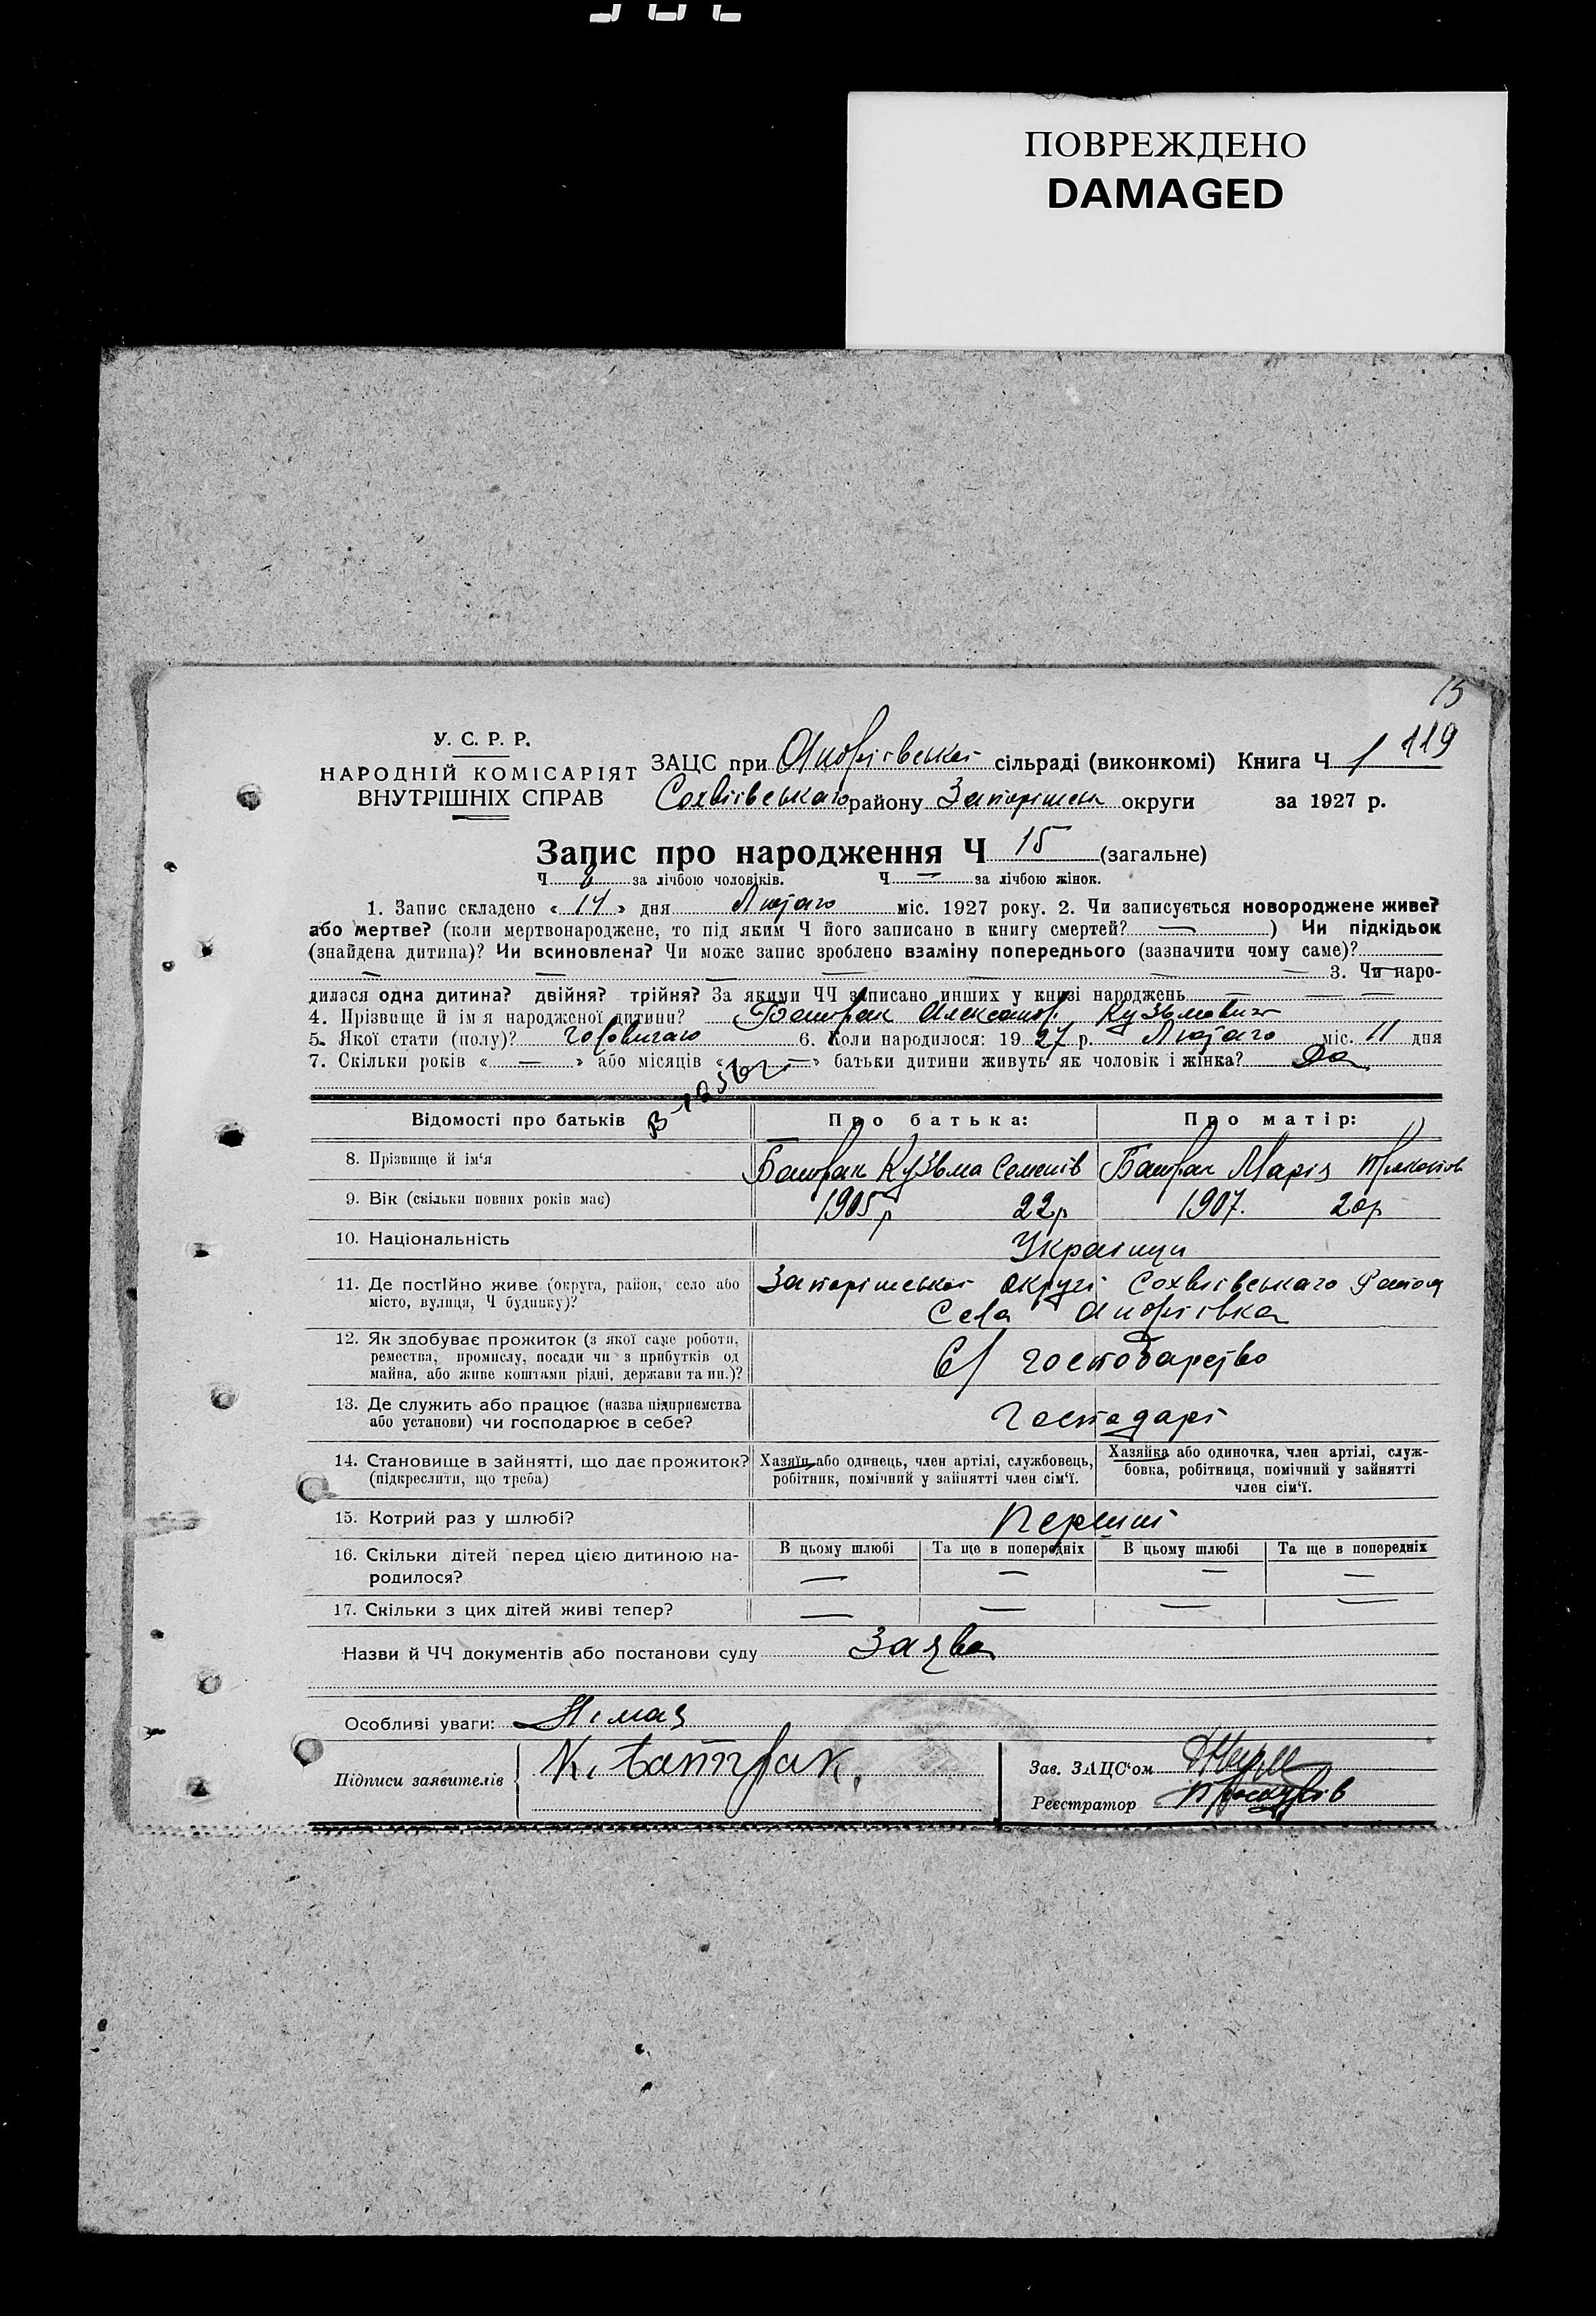 ПОВРЕЖДЕНО
DAMAGED
15
119
У. С. Р. Р.
НАРОДНІЙ КОМІСАРІЯТ
ВНУТРІШНІХ СПРАВ
ЗАЦС при Андріівської сільраді (виконкомі) Книга Ч 1
району округи за 1927 р.
Запис про народження Ч 15 (загальне)
Ч за лічбою чоловіків. Ч — за лічбою жінок.
1. Запис складено « 14 » дня Лютого міс. 1927 року. 2. Чи записується новороджене живе?
або мертве? (коли мертвонароджене, то під яким Ч його записано в книгу смертей? — ) Чи підкідьок
(знайдена дитина)? Чи всиновлена? Чи може запис зроблено взаміну попереднього (зазначити чому саме)?
— — — — — — — 3. Чи наро-
дилася одна дитина? двійня? трійня? За якими ЧЧ записано инших у книзі народжень — — —
4. Прізвище й імя народженої дитини? Батрак Александ. Кузьмович
5. Якої стати (полу)? 6. Коли народилося: 1927 р. Лютого міс. 11 дня
7. Скільки років « — » або місяців « — » батьки дитини живуть як чоловік і жінка? Да
Відомості про батьків
Про батька:
Про матір:
8. Прізвище й ім‘я
Батрак Кузьма Семенів
Батрак Марія
9. Вік (скільки повних років має)
1905 р 22р
1907. 20р
10. Національність
Українці
11. Де постійно живе (округа, район, село або
місто, вулиця, Ч будинку)?
Запоріжської округі Району
Села Андріівка
12. Як здобуває прожиток (з якої саме роботи,
ремества, промислу, посади чи з прибутків од
майна, або живе коштами рідні, держави та ин.)?
С/ господарство
13. Де служить або працює (назва підприємства
або установи) чи господарює в себе?
Господарі
14. Становище в зайнятті, що дає прожиток?
(підкреслити, що треба)
Хазяїн або одинець, член артілі, службовець,
робітник, помічний у зайнятті член сім‘ї.
Хазяйка або одиночка, член артілі, служ-
бовка, робітниця, помічний у зайнятті
член сім‘ї.
15. Котрий раз у шлюбі?
Перший
16. Скільки дітей перед цією дитиною на-
родилося?
В цьому шлюбі Та ще в попередніх В цьому шлюбі Та ще в попередніх
— — — —
17. Скільки з цих дітей живі тепер?
— — — —
Назви й ЧЧ документів або постанови суду Заява
Особливі уваги: Німая
Підписи заявителів К. Батрак.
Зав. ЗАЦС‘ом
Реєстратор